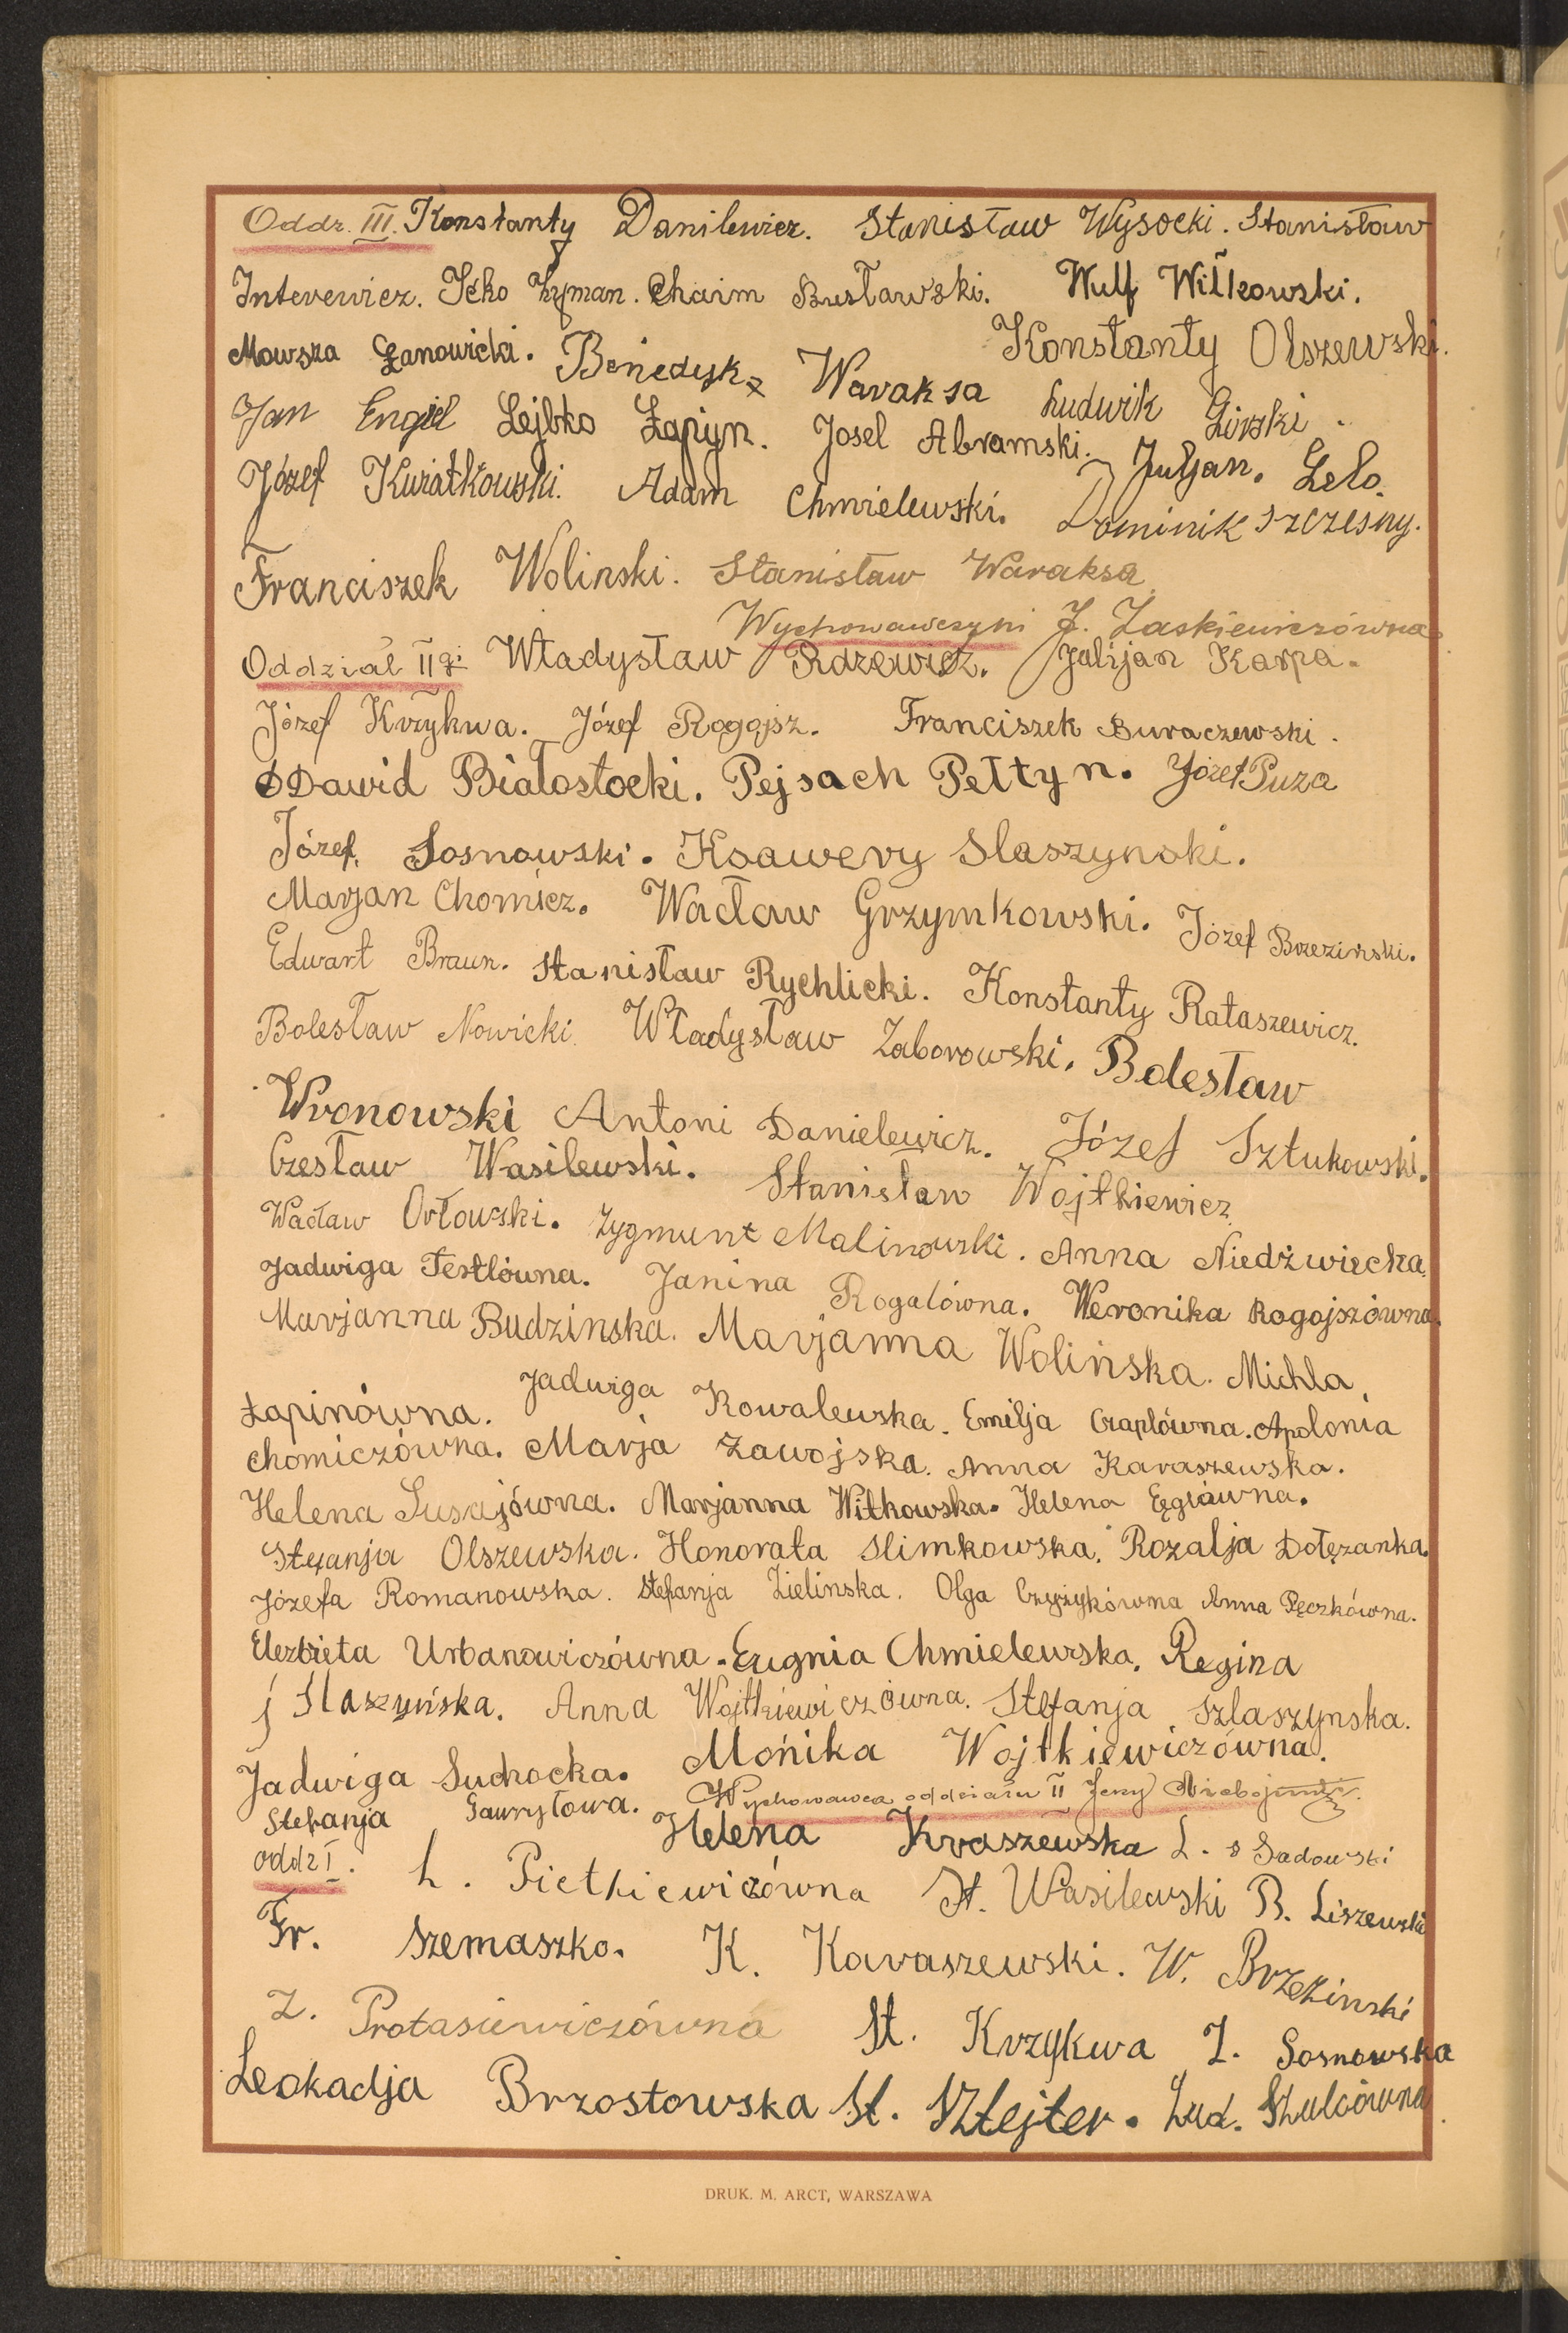 Oddz. III. Konstanty Danilewicz. Stanisław Wysocki. Stanisław
Interewicz. Icko Hyman. Chaim Busławski. Wulf Witkowski.
Mowsza Łanowicki. Benedykt Waraksa Konstanty Olszewski.
Jan Engiel Lejbko Łapijn. Josel Abramski. Ludwik Girski.
Józef Kwiatkowski. Adam Chmielewski. Juljan. Lelo.
Dominik Szczesny.
Franciszek Wolinski. Stanisław Waraksa
Wychowawczyni J. Zaskiewiczówna
Oddział II gi Władysław Rdzewicz. Julijan Karpa.
Józef Krzykwa. Józef Rogojsz. Franciszek Buraczewski.
Dawid Białostocki. Pejsach Pełtyn. Józef Puza
Józef Sosnowski. Ksawery Slaszynski.
Marjan Chomicz. Wacław Grzymkowski. Józef Brzeziński.
Edwart Braun. Stanisław Rychlicki. Konstanty Rataszewicz.
Bolesław Nowicki. Władysław Zaborowski. Bolesław
Wronowski Antoni Danielewicz. Józef Sztukowski.
Czesław Wasilewski. Stanisław Wojtkiewicz
Wacław Orłowski. Zygmunt Malinowski. Anna Niedźwiecka.
Jadwiga Testlówna. Janina Rogalówna. Weronika Rogojszówna.
Marjanna Budzinska. Marjanna Wolińska. Michla
Łapinówna. Jadwiga Kowalewska. Emilja Czaplówna. Apolonia
Chomiczówna. Marja Zawojska. Anna Karaszewska.
Helena Susajówna. Marjanna Witkowska. Helena
Stefanja Olszewska. Honorata Slimkowska. Rozalja Dołęzanka.
Józefa Romanowska. Stefanja Zielinska. Olga Czyżykówna Anna Pęczkówna.
Elezbieta Urbanowiczówna. Eugnia Chmielewska. Regina
Slaszyńska. Anna Wojtkiewiczówna. Stefanja Szlaszynska.
Jadwiga Suchocka. Monika Wojtkiewiczówna.
Stefanja Gawryłowa. Wychowawca oddziału II Jerzy
oddz I. Helena Kraszewska L. Sadowski
L. Pietkiewiczówna St. Wasilewski B. Liszewski
Fr. Szemaszko. K. Karaszewski. W. Brzezinski
Z. Protasiewiczówna St. Krzykwa Z. Sosnowska
Leokadja Brzostowska St. Sztejter. Lud. Szulcówna
DRUK. M. ARCT, WARSZAWA